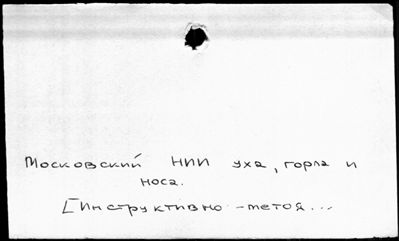 Московский НИИ уха, горла и
носа.
[Инструктивно-метод...